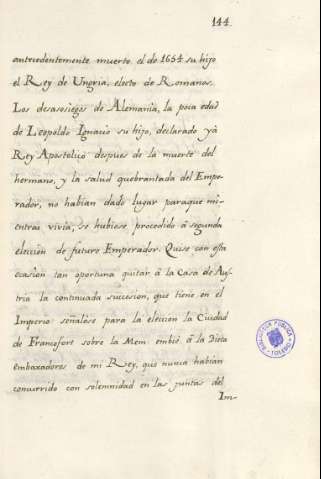 144
antecedentemente muerto el de 1654 su hijo
el Rey de Ungria, electo de Romanos.
Los desasosiegos de Alemania, la poca edad
de Leopoldo Ignacio su hijo, declarado yà
Rey Apostolico despues de la muerte del
hermano, y la salud quebrantada del Empe-
rador, no habian dado lugar paraque mi-
entras vivia, se hubiese procedido â segunda
eleccion de futuro Emperador. Quise con esta
ocasion tan oportuna quitar â la Casa de Aus-
tria la continuada succesion, que tiene en el
Imperio: señalòse para la eleccion la Ciudad
de Francofort sobre la Mem: embiè â la Dieta
embaxadores de mi Rey, que nunca habian
concurrido con solemnidad en las juntas del
Im-
BIBLIOTECA PUBLICA
TOLEDO